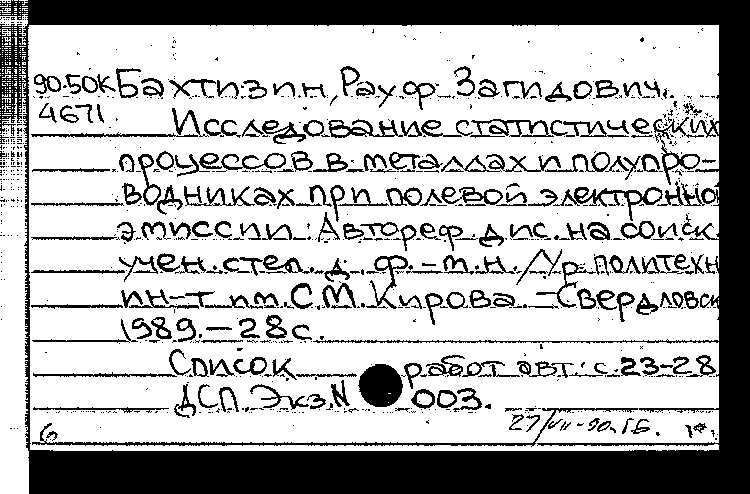 90.50K Бахтизин, Рауф Загидович.
4671 Исследование статистических
процессов в металлах и полупро-
водниках при полевой электронно
эмиссии: Автореф. дис. на соиск.
учен. степ. д. ф.-м.н. /Ур. политехн
ин-т им. С.М. Кирова. -Свердловск
1989. - 28 с.
Список работ авт.: с. 23-28
ДСП. Экз. N 003.
27/VII-90.
6